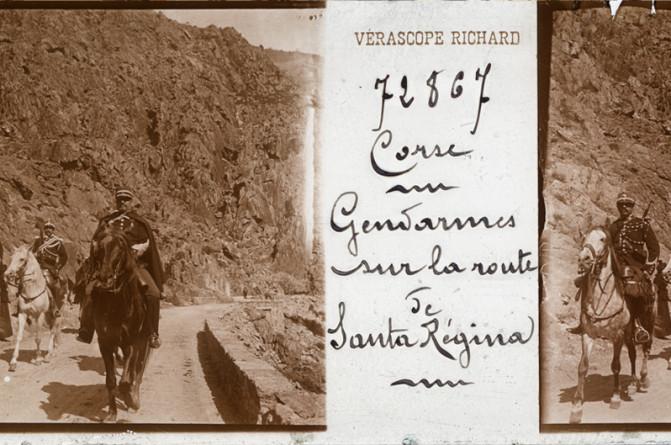 VÉRASCOPE RICHARD
72867
Corse
Gendarmes
sur la route
de
Santa Régina